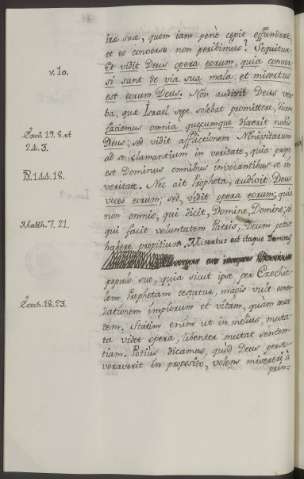 ira sua, quem iam penè cepit effundere,
et ex converso non peribimus? Sequitur
v. 10.
Et vidit Deus opera eorum, quia conver
si sunt de via sua mala: et misertus
est eorum Deus. Non audivit Deus ver
ba, que Israel sepe solebat promittere,
Exod. 19. 8. et
24. 3.
faciemus omnia quecumque dixerit nobis
Deus; sed vidit afflictionem Ninivitarum
ad se clamantium in veritate, quia prope
Ps. 144. 18.
est Dominus omnibus invocantibus se in
veritate. Nec ait Propheta, audivit Deus
voces eorum; sed, vidit opera eorum; quia
Matth. 7. 21.
non omnis, qui dicit, Domine, Domine, sed
qui facit voluntatem Patris, Deum potest
habere propitium. Misertus est itaque Dominus
populi sui, quia sicut ipse per Ezechie
Ezech. 18. 23.
lem Prophetam testatur, magis vult conver
sationem impiorum et vitam, quam mor
tem. Statim enim ut in melius mutata
vidit opera, libenter mutat senten
tiam. Potius dicamus, quòd Deus perse
veraverit in proposito, volens misereri à
prin-